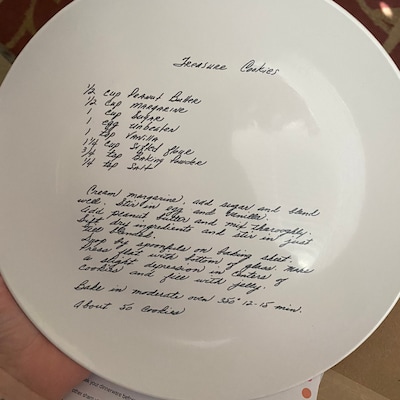 Treasure Cookies
1/2 cup Peanut Butter
1/2 cup Margarine
1 cup Sugar
1 egg unbeaten
1 tsp Vanilla
1 1/4 cup Sifted flour
3/4 tsp Baking Powder
1/4 tsp Salt
Cream margarine, add sugar and blend
well. Stir in egg and vanilla.
Add peanut butter and mix thoroughly.
Sift dry ingredients and stir in just
till blended.
Drop by spoonfuls on baking sheet.
Press flat with bottom of glass. Make
a slight depression in centers of
cookies and fill with jelly.
Bake in moderate oven 350° 12-15 min.
About 50 cookies